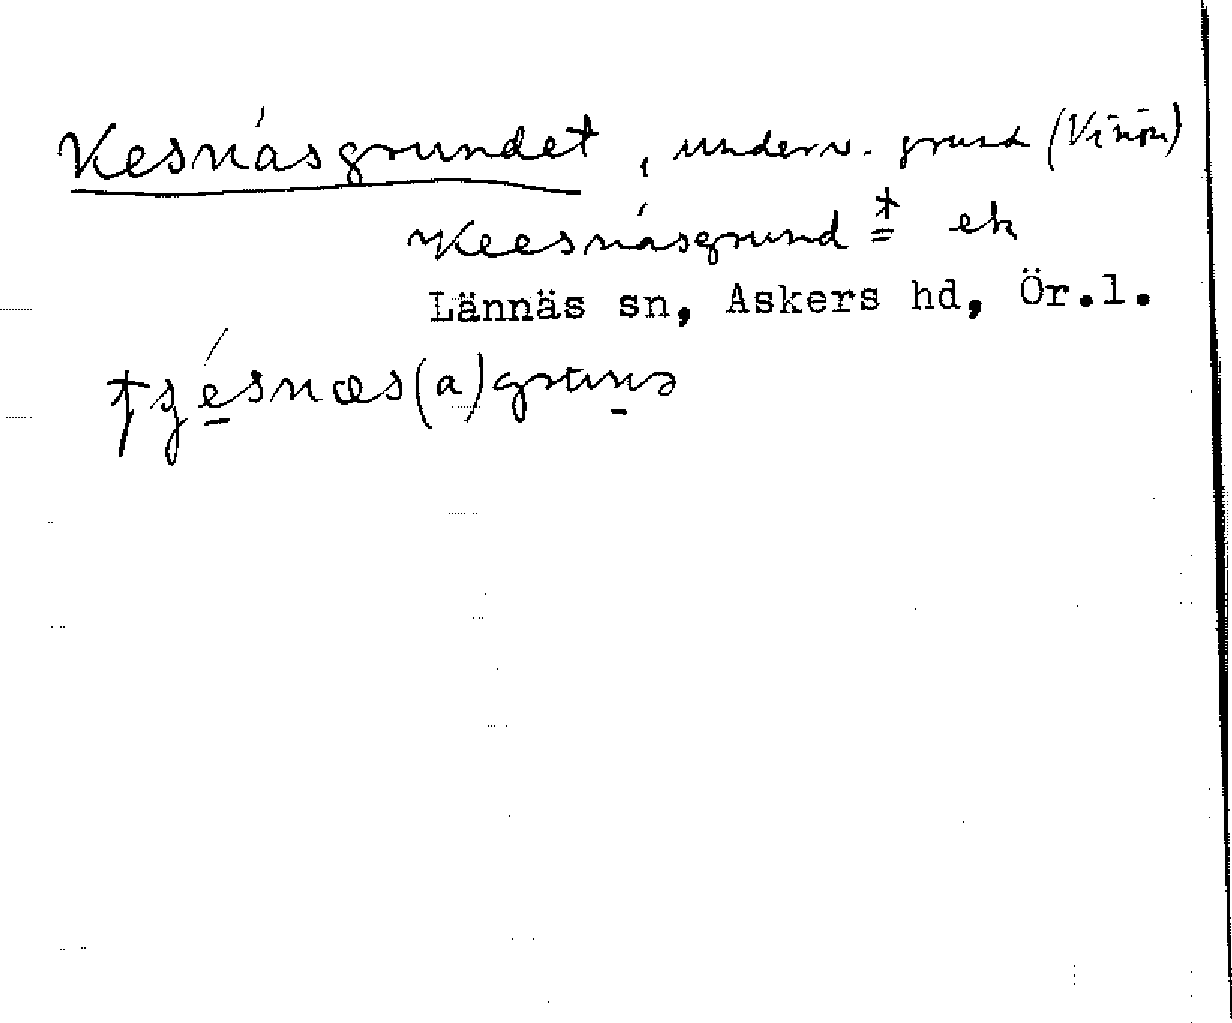 Kesnäsgrundet, underv. grund (Vinön)
Keesnäsgrund ek
Lännäs sn, Askers hd, Ör.l.